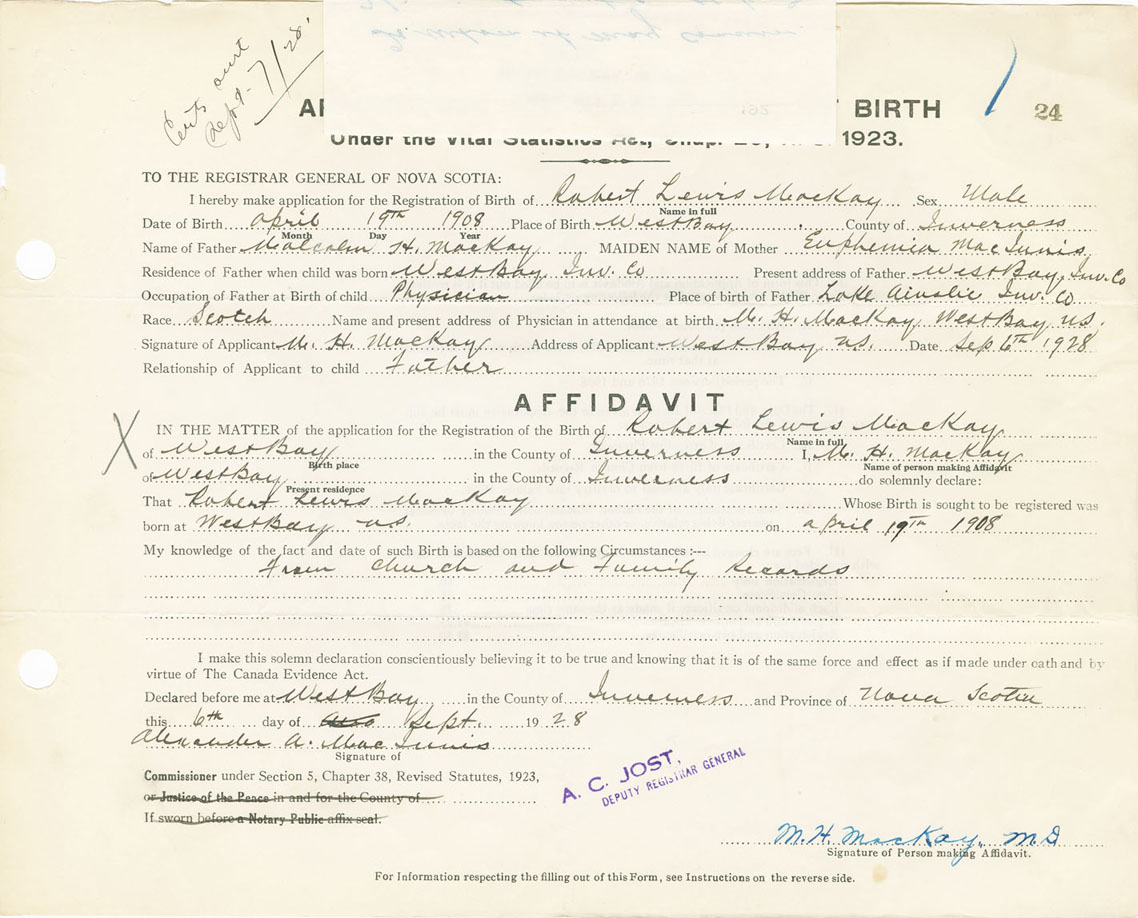 Certs out
Sept. 7/28
BIRTH
24
Under the Vital Statistics Act, 1923.
TO THE REGISTRAR GENERAL OF NOVA SCOTIA:
I hereby make application for the Registration of Birth of Robert Lewis MacKay Sex Male
Name in full
Date of Birth April 19th 1908 Place of Birth West Bay County of Inverness
Month Day Year
Name of Father Malcolm H. MacKay MAIDEN NAME of Mother Euphemia MacInnis
Residence of Father when child was born West Bay Inv. Co Present address of Father West Bay, Inv. Co
Occupation of Father at Birth of child Physician Place of birth of Father Lake Ainslie Inv. Co
Race Scotch Name and present address of Physician in attendance at birth M. H. MacKay West Bay N.S.
Signature of Applicant M. H. MacKay Address of Applicant West Bay N.S. Date Sep 6th 1928
Relationship of Applicant to child Father
AFFIDAVIT
X
IN THE MATTER of the application for the Registration of the Birth of Robert Lewis MacKay
Name in full
of West Bay in the County of Inverness I, M. H. MacKay
Birth place Name of person making Affidavit
of West Bay in the County of Inverness do solemnly declare:
Present residence
That Robert Lewis MacKay Whose Birth is sought to be registered was
born at West Bay N.S. on April 19th 1908
My knowledge of the fact and date of such Birth is based on the following Circumstances :---
From Church and Family Records
I make this solemn declaration conscientiously believing it to be true and knowing that it is of the same force and effect as if made under oath and by
virtue of The Canada Evidence Act.
Declared before me at West Bay in the County of Inverness and Province of Nova Scotia
this 6th day of Sept. 1928
Alexander A. MacInnis
Signature of
Commissioner under Section 5, Chapter 38, Revised Statutes, 1923,
or Justice of the Peace in and for the County of
If sworn before a Notary Public affix seal.
A. C. JOST,
DEPUTY REGISTRAR GENERAL
M. H. MacKay, M D
Signature of Person making Affidavit.
For Information respecting the filling out of this Form, see Instructions on the reverse side.